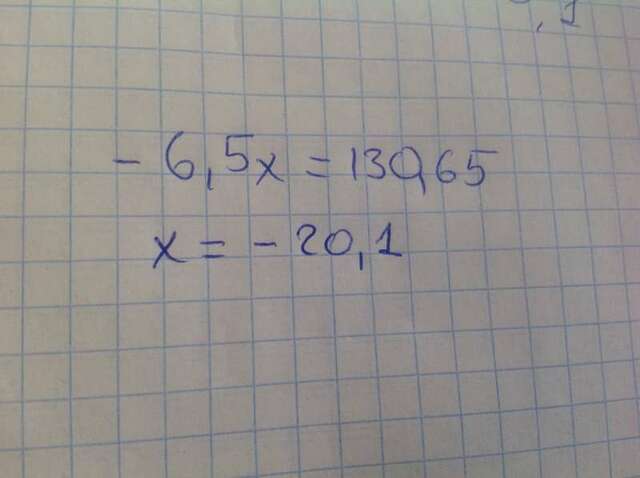 - 6,5x = 130,65
x = - 20,1